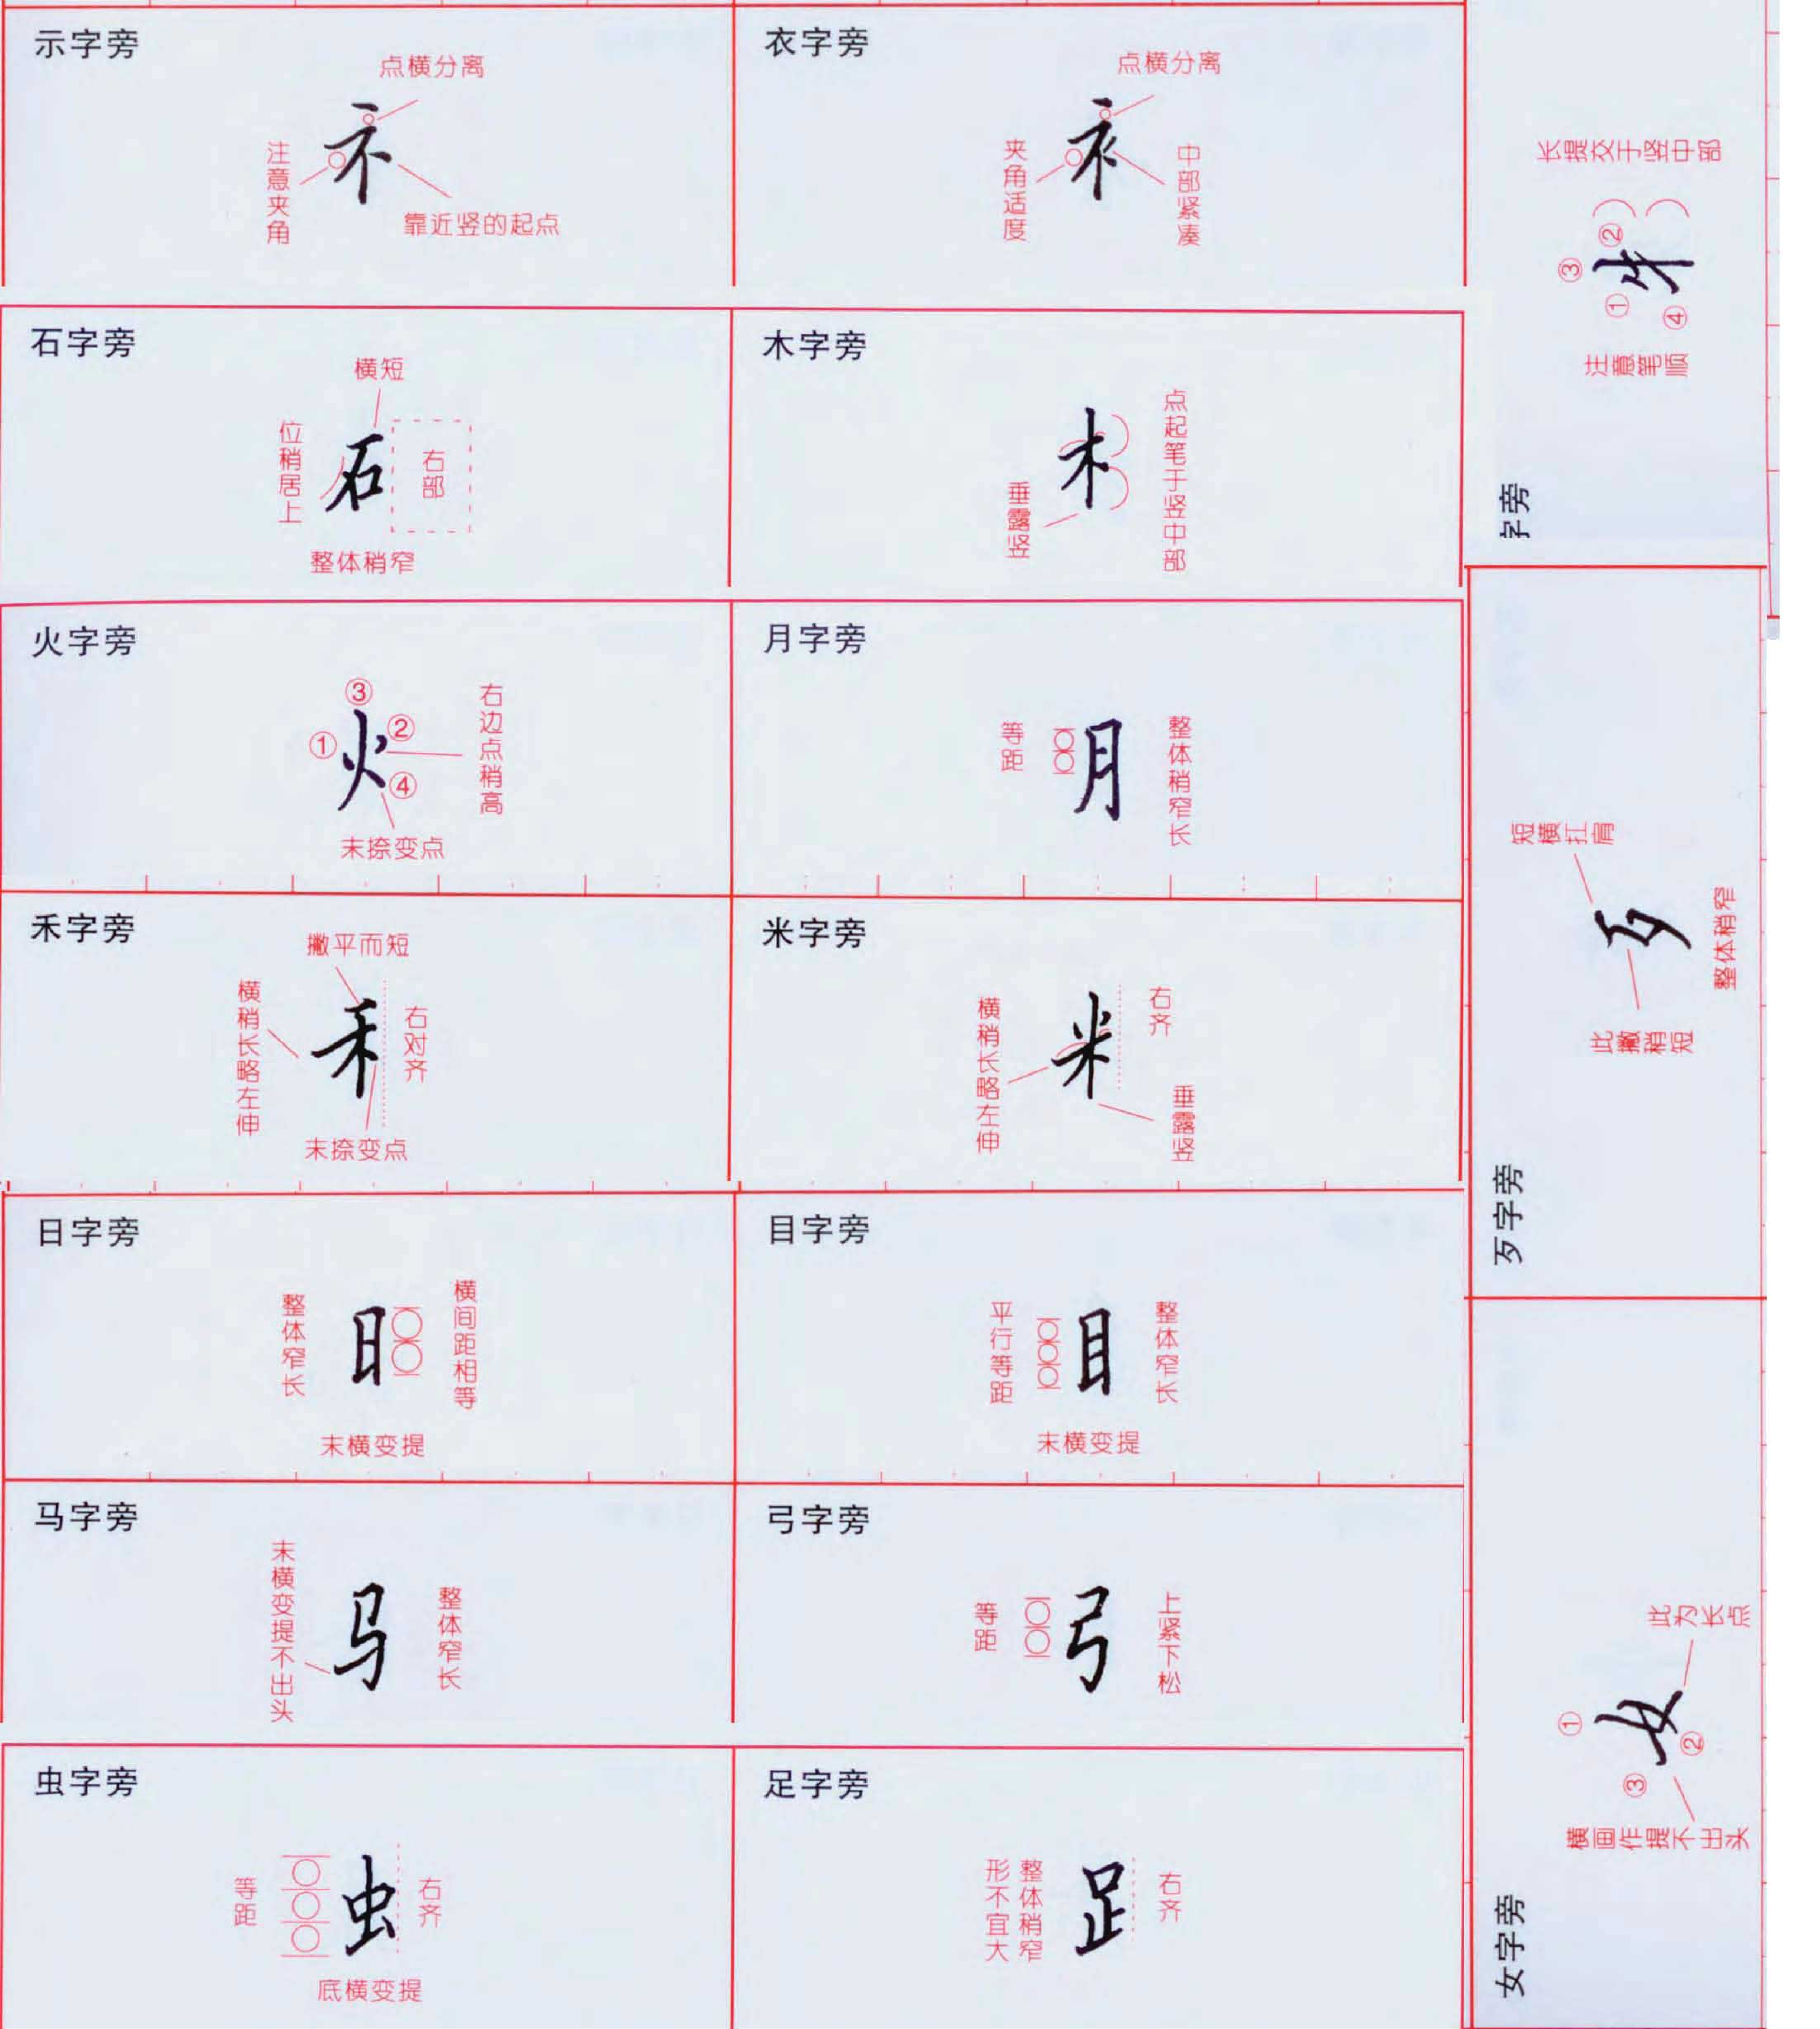 示字旁
点横分离
礻
注意夹角
靠近竖的起点
衣字旁
点横分离
衤
夹角适度
中部紧凑
石字旁
横短
位稍居上
石
右部
整体稍窄
木字旁
木
点起笔于竖中部
垂露竖
火字旁
③
①
②
火
④
右边点稍高
末捺变点
月字旁
等距
月
整体稍窄长
禾字旁
撇平而短
横稍长略左伸
禾
右对齐
末捺变点
米字旁
横稍长略左伸
米
右齐
垂露竖
日字旁
整体窄长
日
横间距相等
末横变提
目字旁
平行等距
目
整体窄长
末横变提
马字旁
末横变提不出头
马
整体窄长
弓字旁
等距
弓
上紧下松
虫字旁
等距
虫
右齐
底横变提
足字旁
形不宜大
整体稍窄
足
右齐
字旁
长提交于竖中部
③
②
①
④
注意笔顺
歹字旁
短横扛肩
歹
此撇稍短
整体稍窄
女字旁
①
女
②
③
此为长点
横画作提不出头